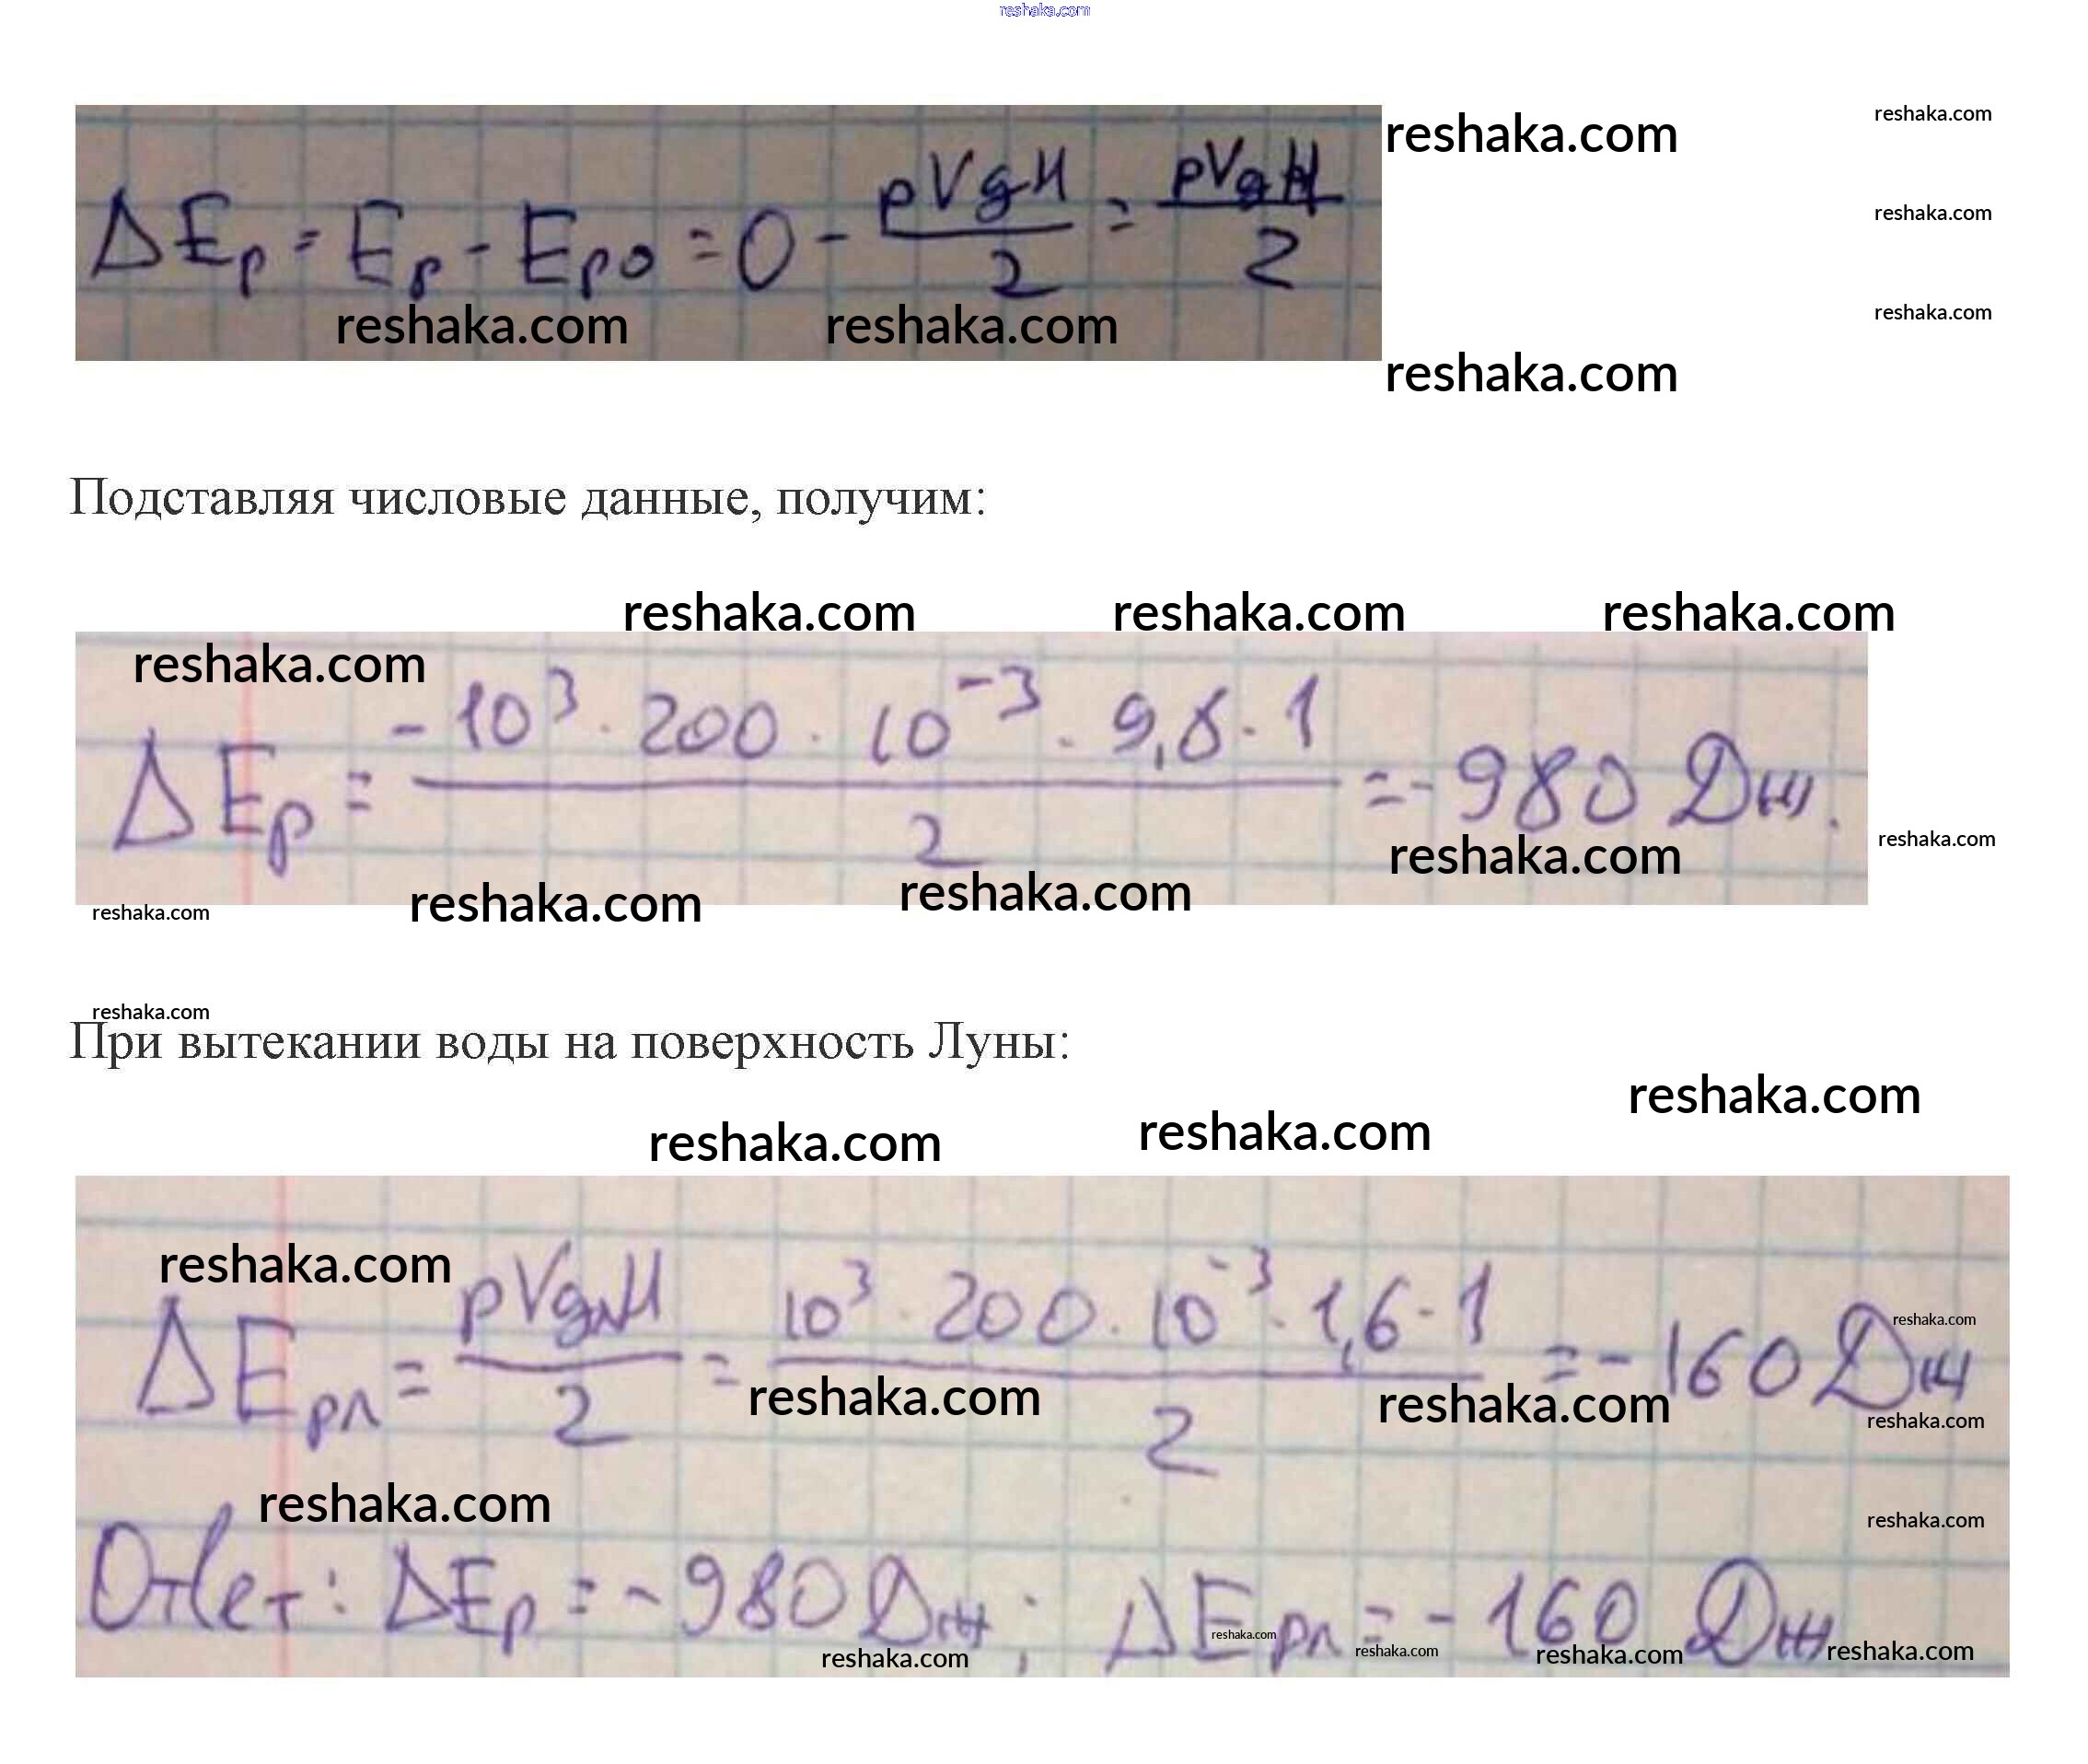 reshaka.com
reshaka.com reshaka.com
ΔEр = Eр - Eро = 0 - ρVgH/2 = ρVgH/2
reshaka.com
reshaka.com reshaka.com reshaka.com
reshaka.com
Подставляя числовые данные, получим:
reshaka.com reshaka.com reshaka.com
reshaka.com
ΔEр = -10³ · 200 · 10⁻³ · 9,8 · 1/2 = -980 Дж.
reshaka.com reshaka.com
reshaka.com reshaka.com reshaka.com
reshaka.com
При вытекании воды на поверхность Луны:
reshaka.com
reshaka.com reshaka.com
reshaka.com
ΔEрл = ρVgлH/2 = 10³ · 200 · 10⁻³ · 1,6 · 1/2 = -160 Дж
reshaka.com
reshaka.com reshaka.com reshaka.com
reshaka.com reshaka.com
Ответ: ΔEр = -980 Дж; ΔEрл = -160 Дж
reshaka.com reshaka.com reshaka.com reshaka.com reshaka.com